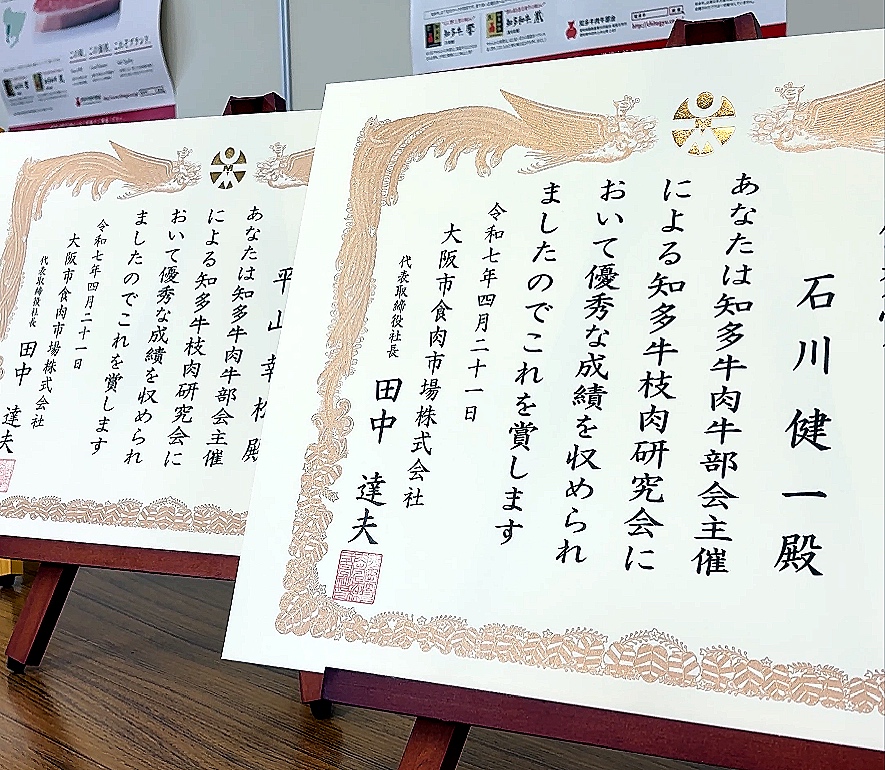 石川健一殿
あなたは知多牛肉牛部会主催
による知多牛枝肉研究会に
おいて優秀な成績を収められ
ましたのでこれを賞します
令和七年四月二十一日
大阪市食肉市場株式会社
代表取締役社長 田中 達夫
平山幸松殿
あなたは知多牛肉牛部会主催
による知多牛枝肉研究会に
おいて優秀な成績を収められ
ましたのでこれを賞します
令和七年四月二十一日
大阪市食肉市場株式会社
代表取締役社長 田中 達夫
知多牛 響